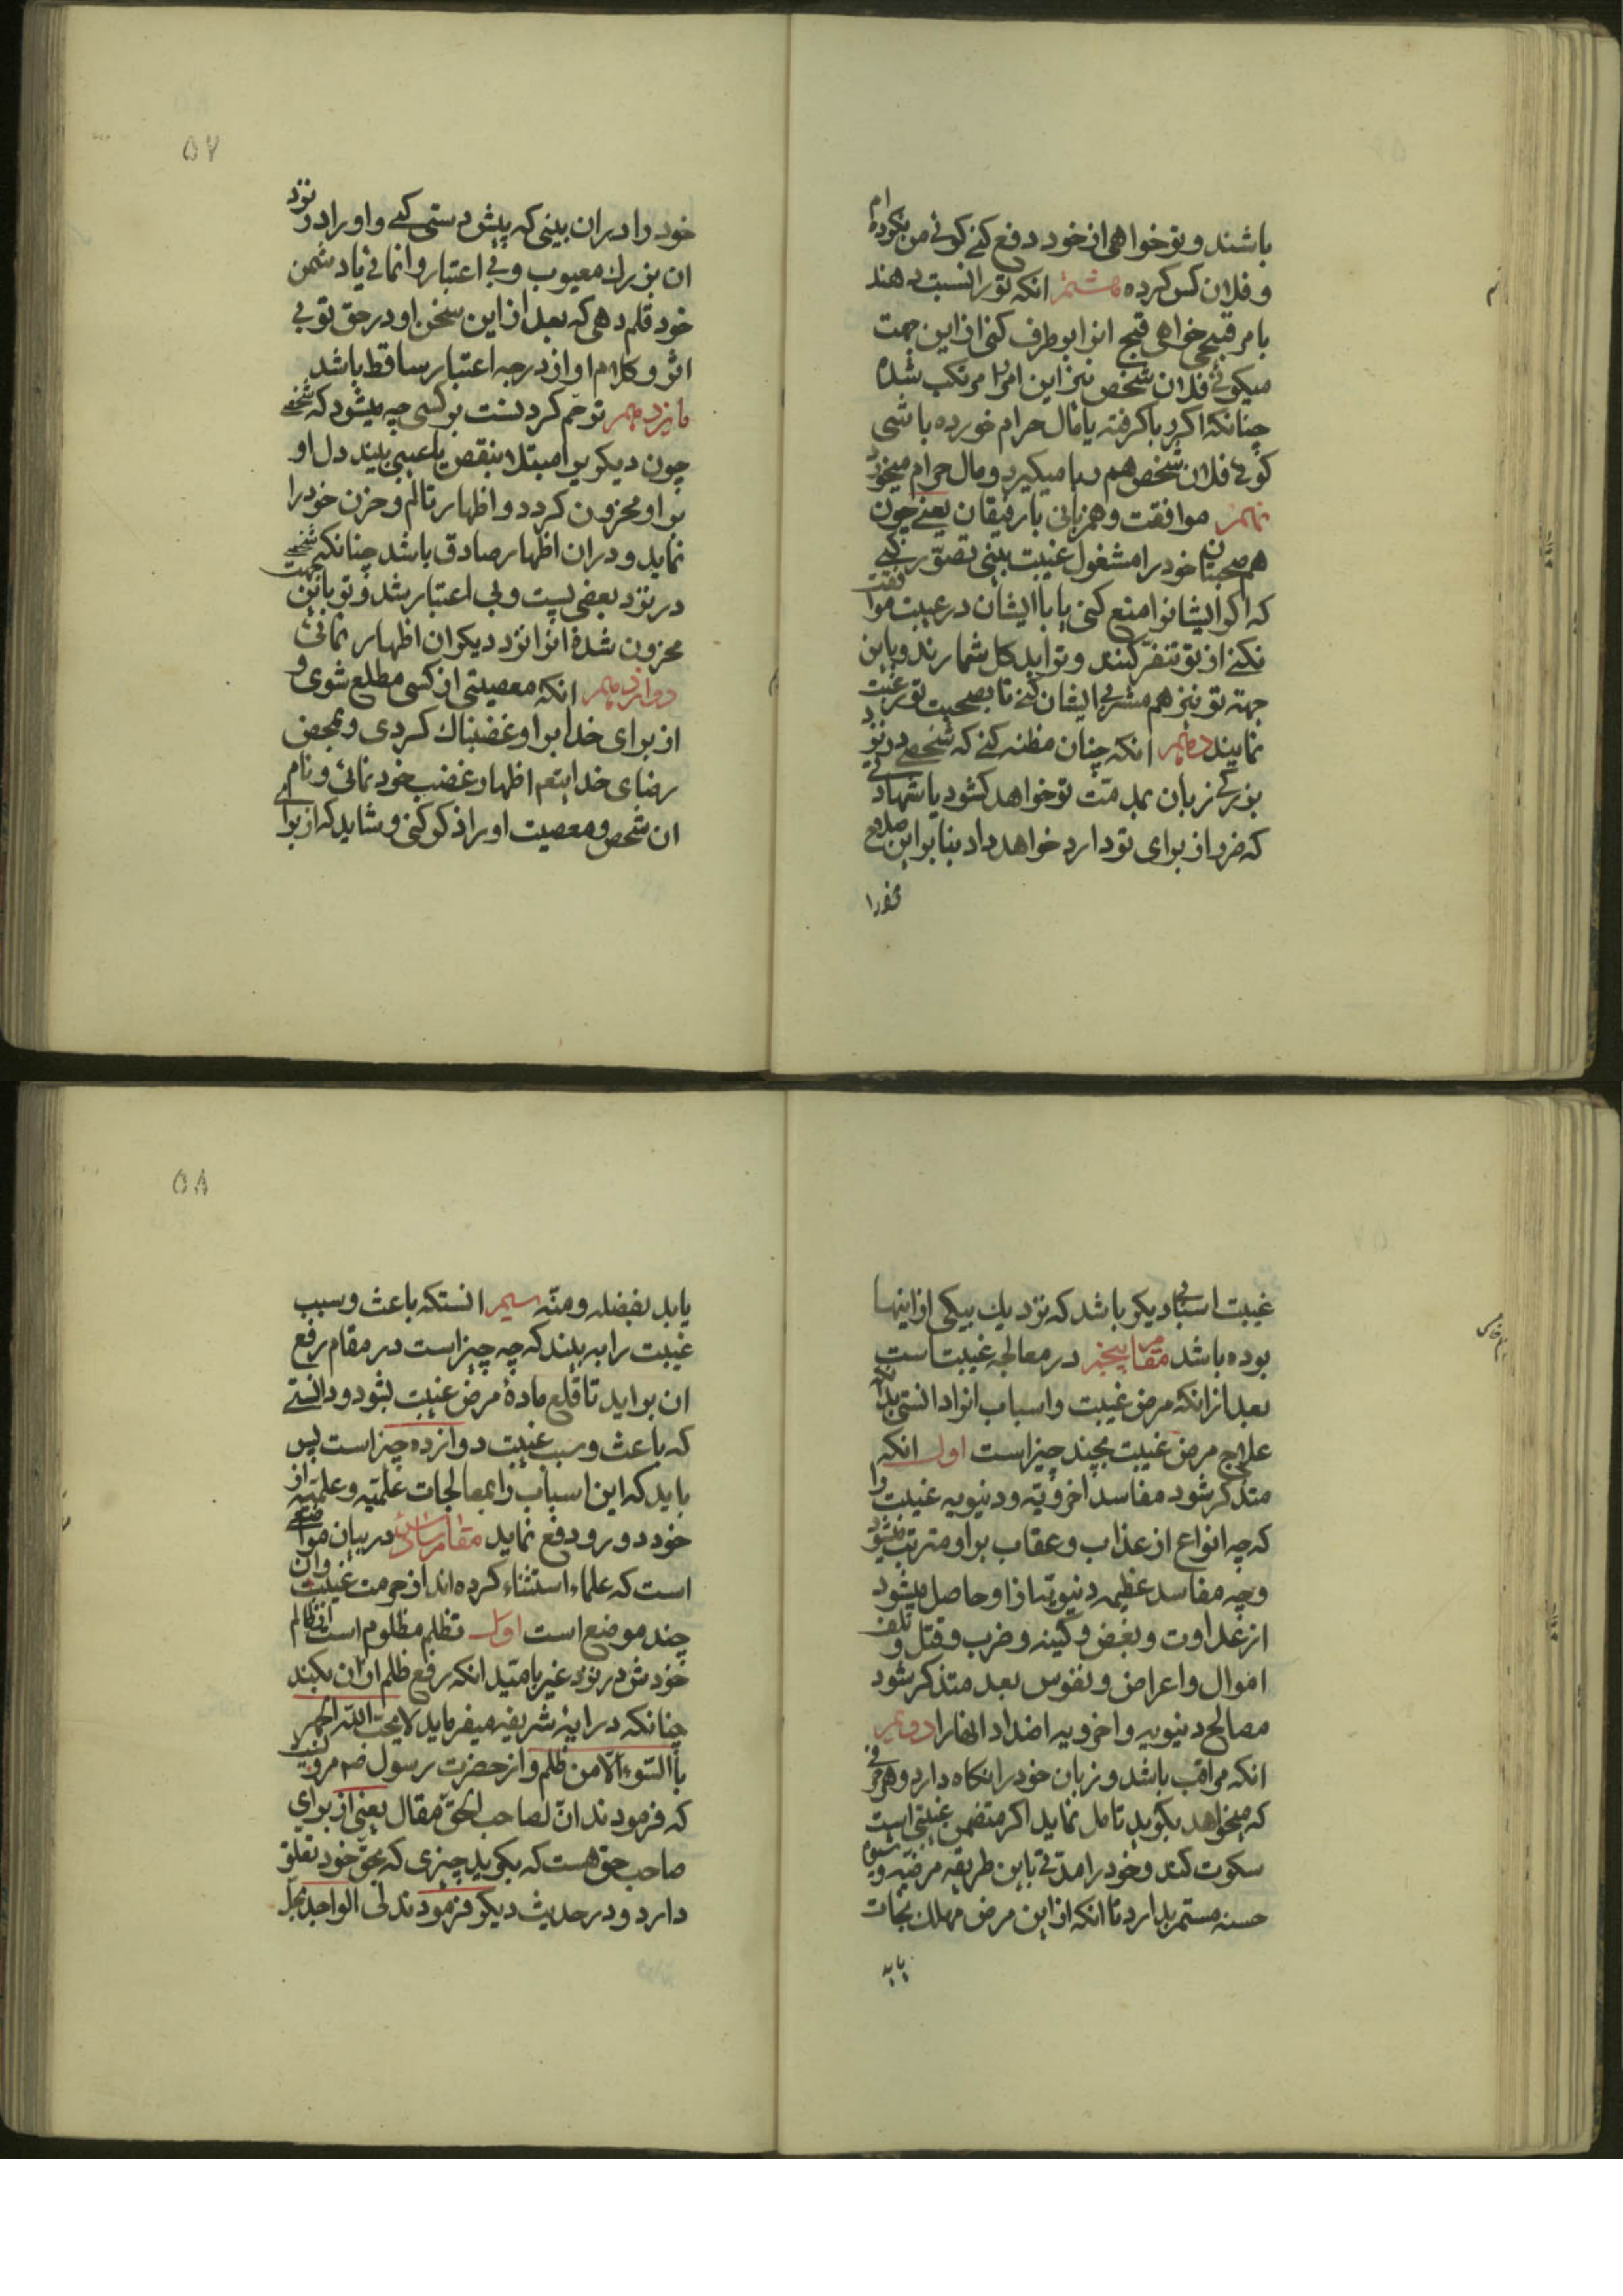 باشند و تو خواهی از خود دفع کنی کوئی من نکرده‌ام
و فلان کس کرده هشتم انکه تو را نسبت دهند
بامر قبیحی خواهی قبح انرا برطرف کنی از این جهت
میکوئی فلان شخص نیز این امر را مرتکب شده
چنانکه اکر ربا کرفته یا مال حرام خورده باشی
کوئی فلان شخص هم ربا میکیرد و مال حرام میخورد
نهم موافقت و همزبانی با رفیقان یعنی چون
هم صحبتان خود را مشغول غیبت بینی تصور کنی
که اکر ایشانرا منع کنی یا با ایشان در غیبت موافقت
نکنی از تو تنفر کنند و ترا بدکل شمارند و باین
جهته تو نیز هم مشربی ایشان کنی تا بصحبت تو رغبت
نمایند دهم انکه چنان مظنه کنی که شخصی در نزد
بزرکی زبان بمذمت تو خواهد کشود یا شهادتی
که ضرر از برای تو دارد خواهد داد بنا بر این صلاح
خود را
۵۷
خود را در ان بینی که پیش دستی کنی و او را در نزد
ان بزرك معیوب و بی اعتبار وانمائی یا دشمن
خود قلم دهی که بعد از این سخن او در حق تو بی
اثر و کلام او از درجه اعتبار ساقط باشد
یازدهم ترحم کردنست بر کسی چه میشود که شخصی
چون دیکری را مبتلا بنقص یا عیبی بیند دل او
بر او محزون کردد و اظهار تالم و حزن خود را
نماید و در ان اظهار صادق باشد چنانکه شخصی
در نزد بعضی پست و بی اعتبار شد و تو باین جهت
محزون شده انرا نزد دیکران اظهار نمائی
دوازدهم انکه معصیتی از کسی مطلع شوی و
از برای خدا بر او غضبناك کردی و بمحض
رضای خدا یتعم اظهار غضب خود نمائی و نام
ان شخص و معصیت او را ذکر کنی و شاید که از برای
غیبت اسبابی دیکر باشد که نزدیك بیکی از اینها
بوده باشد مقام پنجم در معالجه غیبت است
بعد از انکه مرض غیبت و اسباب انرا دانستی بدانکه
علاج مرض غیبت بچند چیز است اول انکه
متذکر شود مفاسد اخرویه و دنیویه غیبت را
که چه انواع از عذاب و عقاب بر او مترتب میشود
و چه مفاسد عظیمه دنیویه از او حاصل میشود
از عداوت و بغض و کینه و ضرب و قتل و تلف
اموال و اعراض و نفوس بعد متذکر شود
مصالح دنیویه و اخرویه اضداد انها را دویم
انکه مراقب باشد و زبان خود را نکاه دارد و هر حرفی
که میخواهد بکوید تامل نماید اکر متضمن غیبتی است
سکوت کند و خود را مدتی باین طریقه مرضیه و شیوه
حسنه مستمر بدارد تا انکه از این مرض مهلك نجات
یابد
۵۸
یابد بفضله و منّه سیم انستکه باعث و سبب
غیبت را به بیند که چه چیز است در مقام رفع
ان براید تا قلع مادهٔ مرض غیبت بشود و دانستی
که باعث و سبب غیبت دوازده چیز است پس
باید که این اسباب را بمعالجات علمیه و عملیه از
خود دور و دفع نماید مقام سادس در بیان مواضعی
است که علماء استثناء کرده‌اند از حرمت غیبت و ان
چند موضع است اول تظلم مظلوم است از ظالم
خودش در نزد غیر بامید انکه رفع ظلم از ان بکند
چنانکه در ایهٔ شریفه میفرماید لا یحب الله الجهر
بالسوء الّا من ظلم و از حضرت رسول ص مرویست
که فرمودند انّ لصاحب الحقّ مقال یعنی از برای
صاحب حق هست که بکوید چیزی که بحق خود تعلق
دارد و در حدیث دیکر فرمودند لی الواجد یحلّ